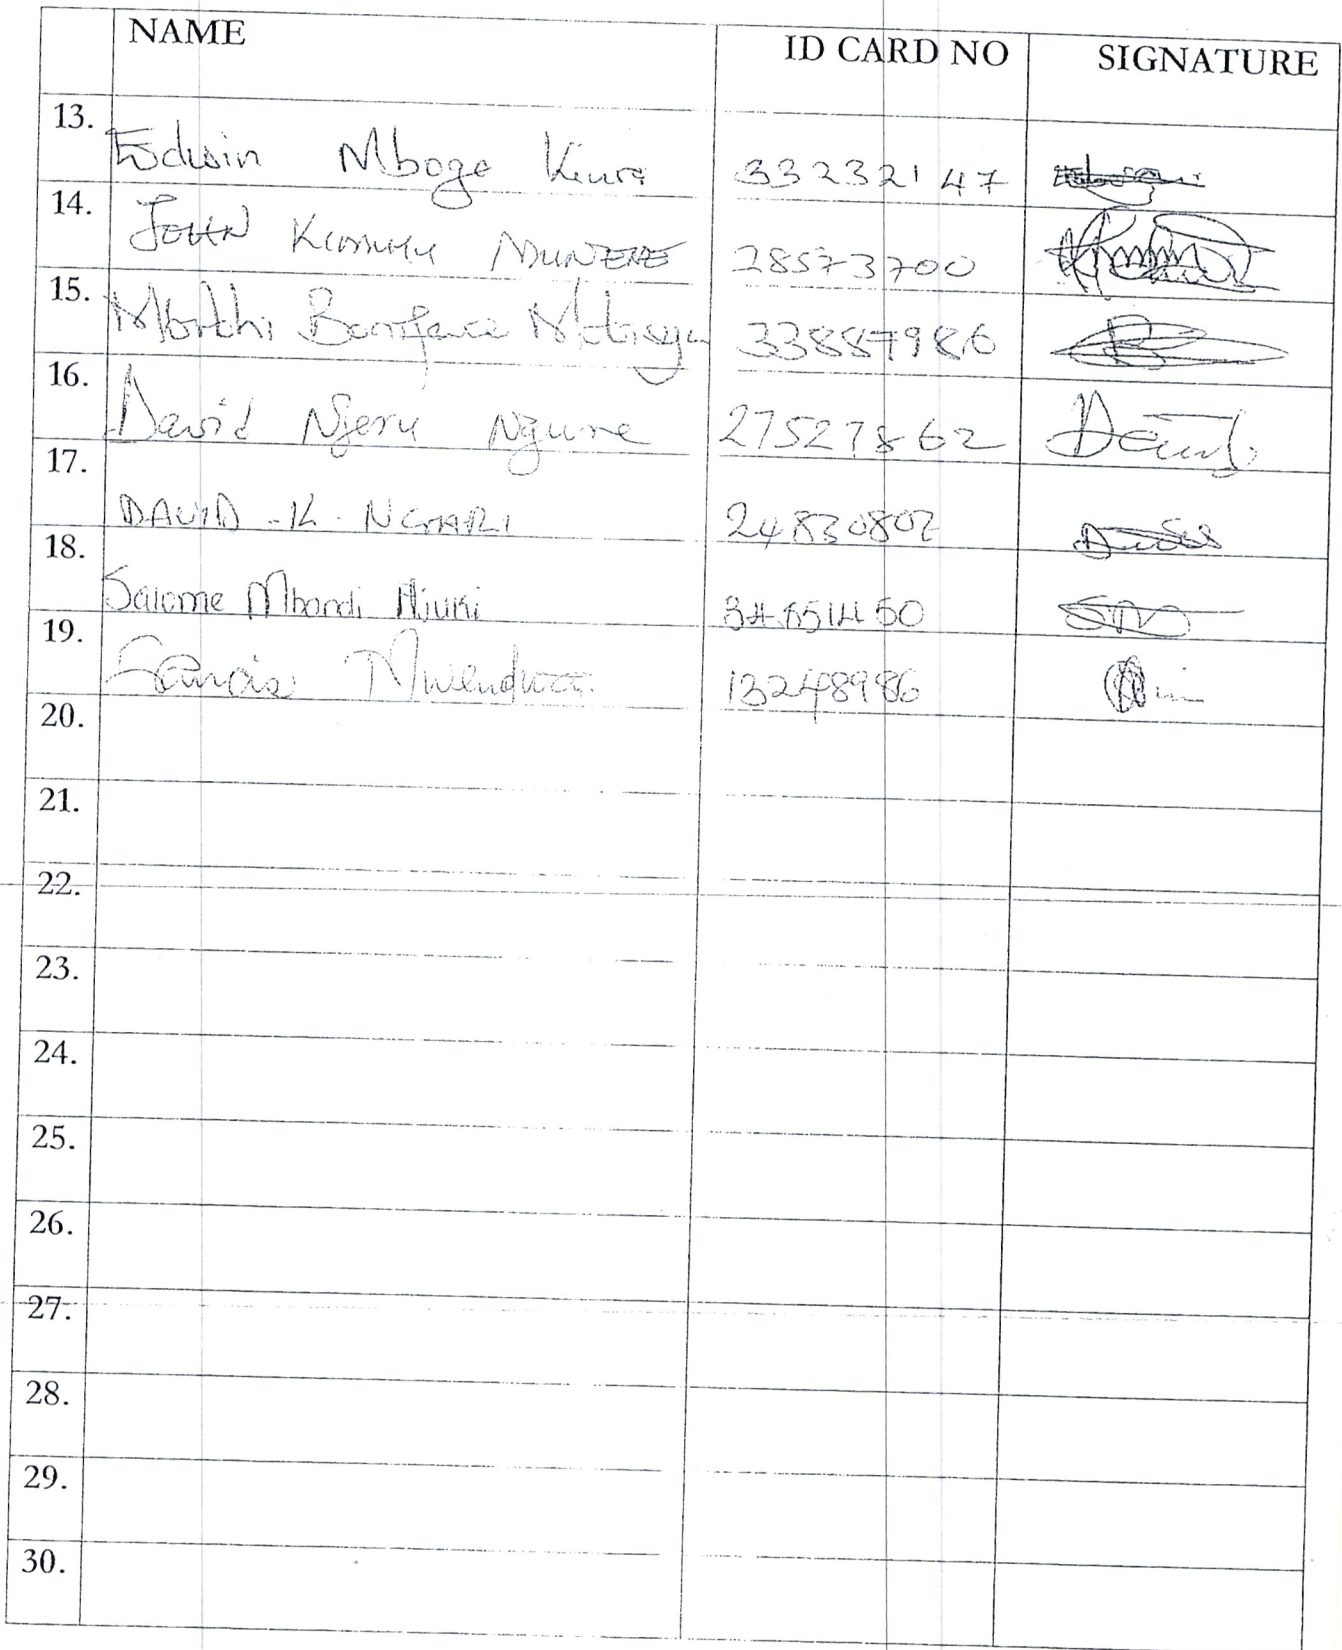 NAME ID CARD NO SIGNATURE
13. Edwin Mbogo Kiura 33232147
14. JOHN MUNENE 28573700
15. Boniface 33887986
16. David Njeru Ngure 27527862
17. DAVID .K. NGARI 24830802
18. Salome Mbandi Njuki
19. Mwendwa 13248986
20.
21.
22.
23.
24.
25.
26.
27.
28.
29.
30.